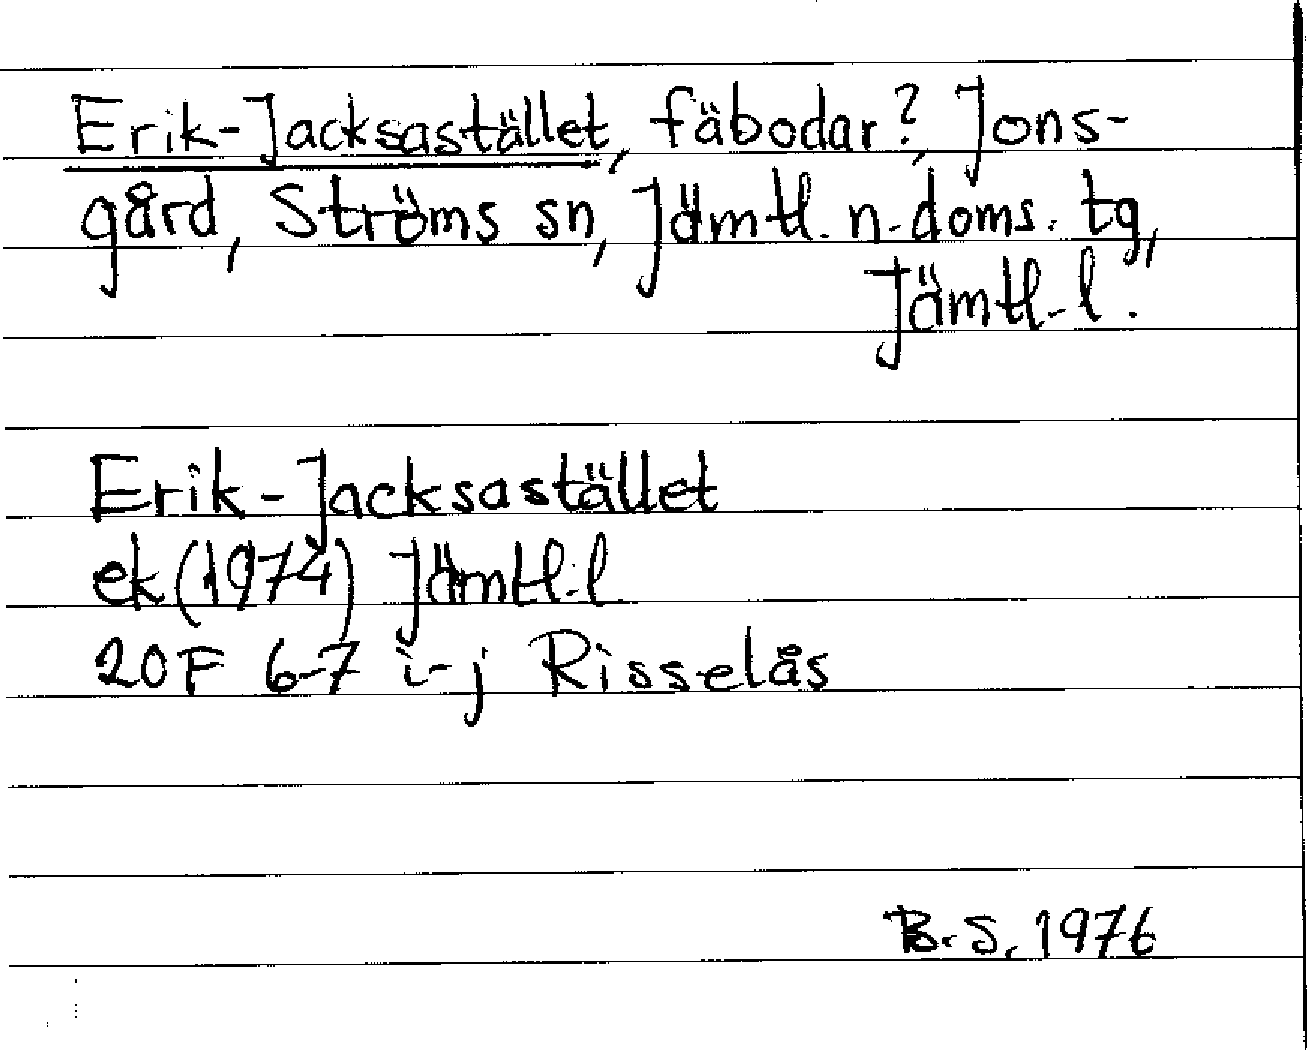 Erik-Jacksastället, fäbodar?, Jons-
gård, Ströms sn, Jämtl. n. doms. tg,
Jämtl. l.
Erik-Jacksastället
ek (1974) Jämtl. l
20F 6-7 i-j Risselås
B.S. 1976